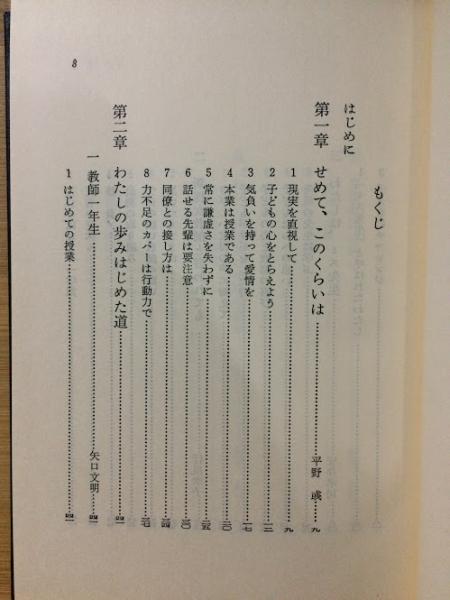 もくじ
はじめに
第一章 せめて、このくらいは……平野 彧……九
1 現実を直視して……九
2 子どもの心をとらえよう……一二
3 気負いを持って愛情を……一七
4 本業は授業である……二〇
5 常に謙虚さを失わずに……二五
6 話せる先輩は要注意……三〇
7 同僚との接し方は……三四
8 力不足のカバーは行動力で……三七
第二章 わたしの歩みはじめた道……四一
一 教師一年生……矢口文明……四一
1 はじめての授業……四一
8